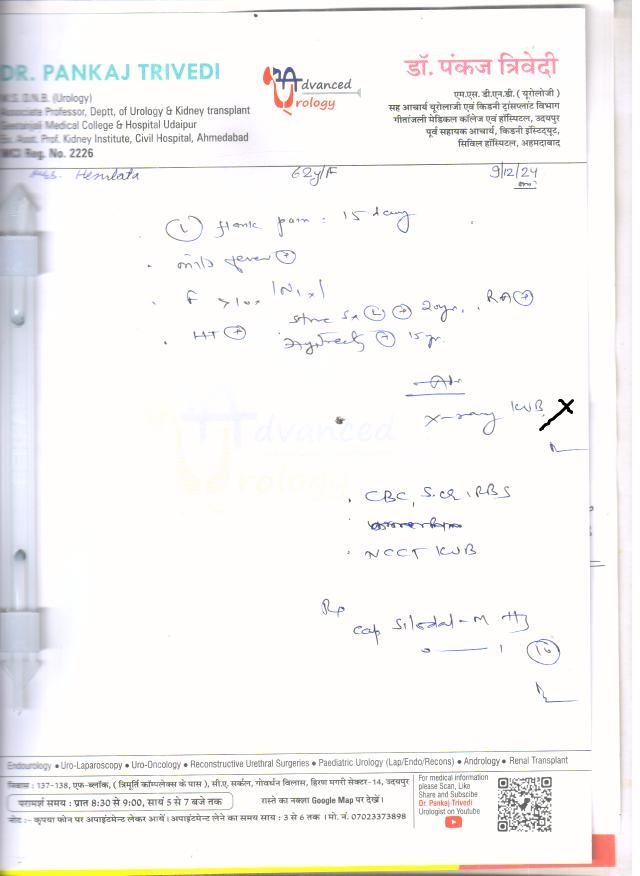 DR. PANKAJ TRIVEDI
M.S. D.N.B. (Urology)
Associate Professor, Deptt. of Urology & Kidney transplant
Geetanjali Medical College & Hospital Udaipur
Ex. Asst. Prof. Kidney Institute, Civil Hospital, Ahmedabad
MCI Reg. No. 2226
Advanced
Urology
डॉ. पंकज त्रिवेदी
एम.एस. डी.एन.बी. ( यूरोलोजी )
सह आचार्य यूरोलोजी एवं किडनी ट्रांसप्लांट विभाग
गीतांजली मेडिकल कॉलेज एवं हॉस्पिटल, उदयपुर
पूर्व सहायक आचार्य, किडनी इंस्टिट्यूट,
सिविल हॉस्पिटल, अहमदाबाद
Hemlata 62y/F 9/12/24
(L) flank pain : 15 days
mild fever (+)
F >10x |N1x|
stone Sx (L) (+) 20yr. RA (+)
HT (+) (+) 15 yr.
X-ray KUB X
Advanced
Urology
CBC, S.cr, RBS
NCCT KUB
Rp
cap Silodal-M
0 — 1 (10)
Endourology ● Uro-Laparoscopy ● Uro-Oncology ● Reconstructive Urethral Surgeries ● Paediatric Urology (Lap/Endo/Recons) ● Andrology ● Renal Transplant
निवास : 137-138, एफ-ब्लॉक, ( त्रिमूर्ति कॉम्पलेक्स के पास ), सी.ए. सर्कल, गोवर्धन विलास, हिरण मगरी सेक्टर-14, उदयपुर
परामर्श समय : प्रात 8:30 से 9:00, सायं 5 से 7 बजे तक रास्ते का नक्शा Google Map पर देखें।
नोट :- कृपया फोन पर अपाइंटमेन्ट लेकर आयें। अपाइंटमेन्ट लेने का समय सायं : 3 से 6 तक । मो. नं. 07023373898
For medical information
please Scan, Like
Share and Subscibe
Dr. Pankaj Trivedi
Urologist on Youtube